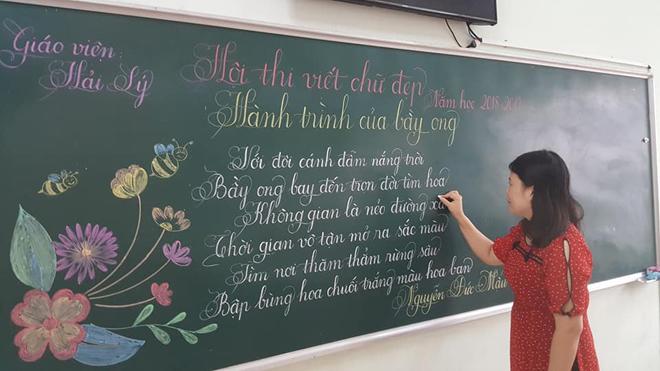 Giáo viên
Hải Lý
Hội thi viết chữ đẹp
Năm học 2018-20
Hành trình của bầy ong
Với đôi cánh đẫm nắng trời
Bầy ong bay đến trọn đời tìm hoa
Không gian là nẻo đường xa
Thời gian vô tận mở ra sắc màu
Tìm nơi thăm thẳm rừng sâu
Bập bùng hoa chuối trắng màu hoa ban
Nguyễn Đức Mậu